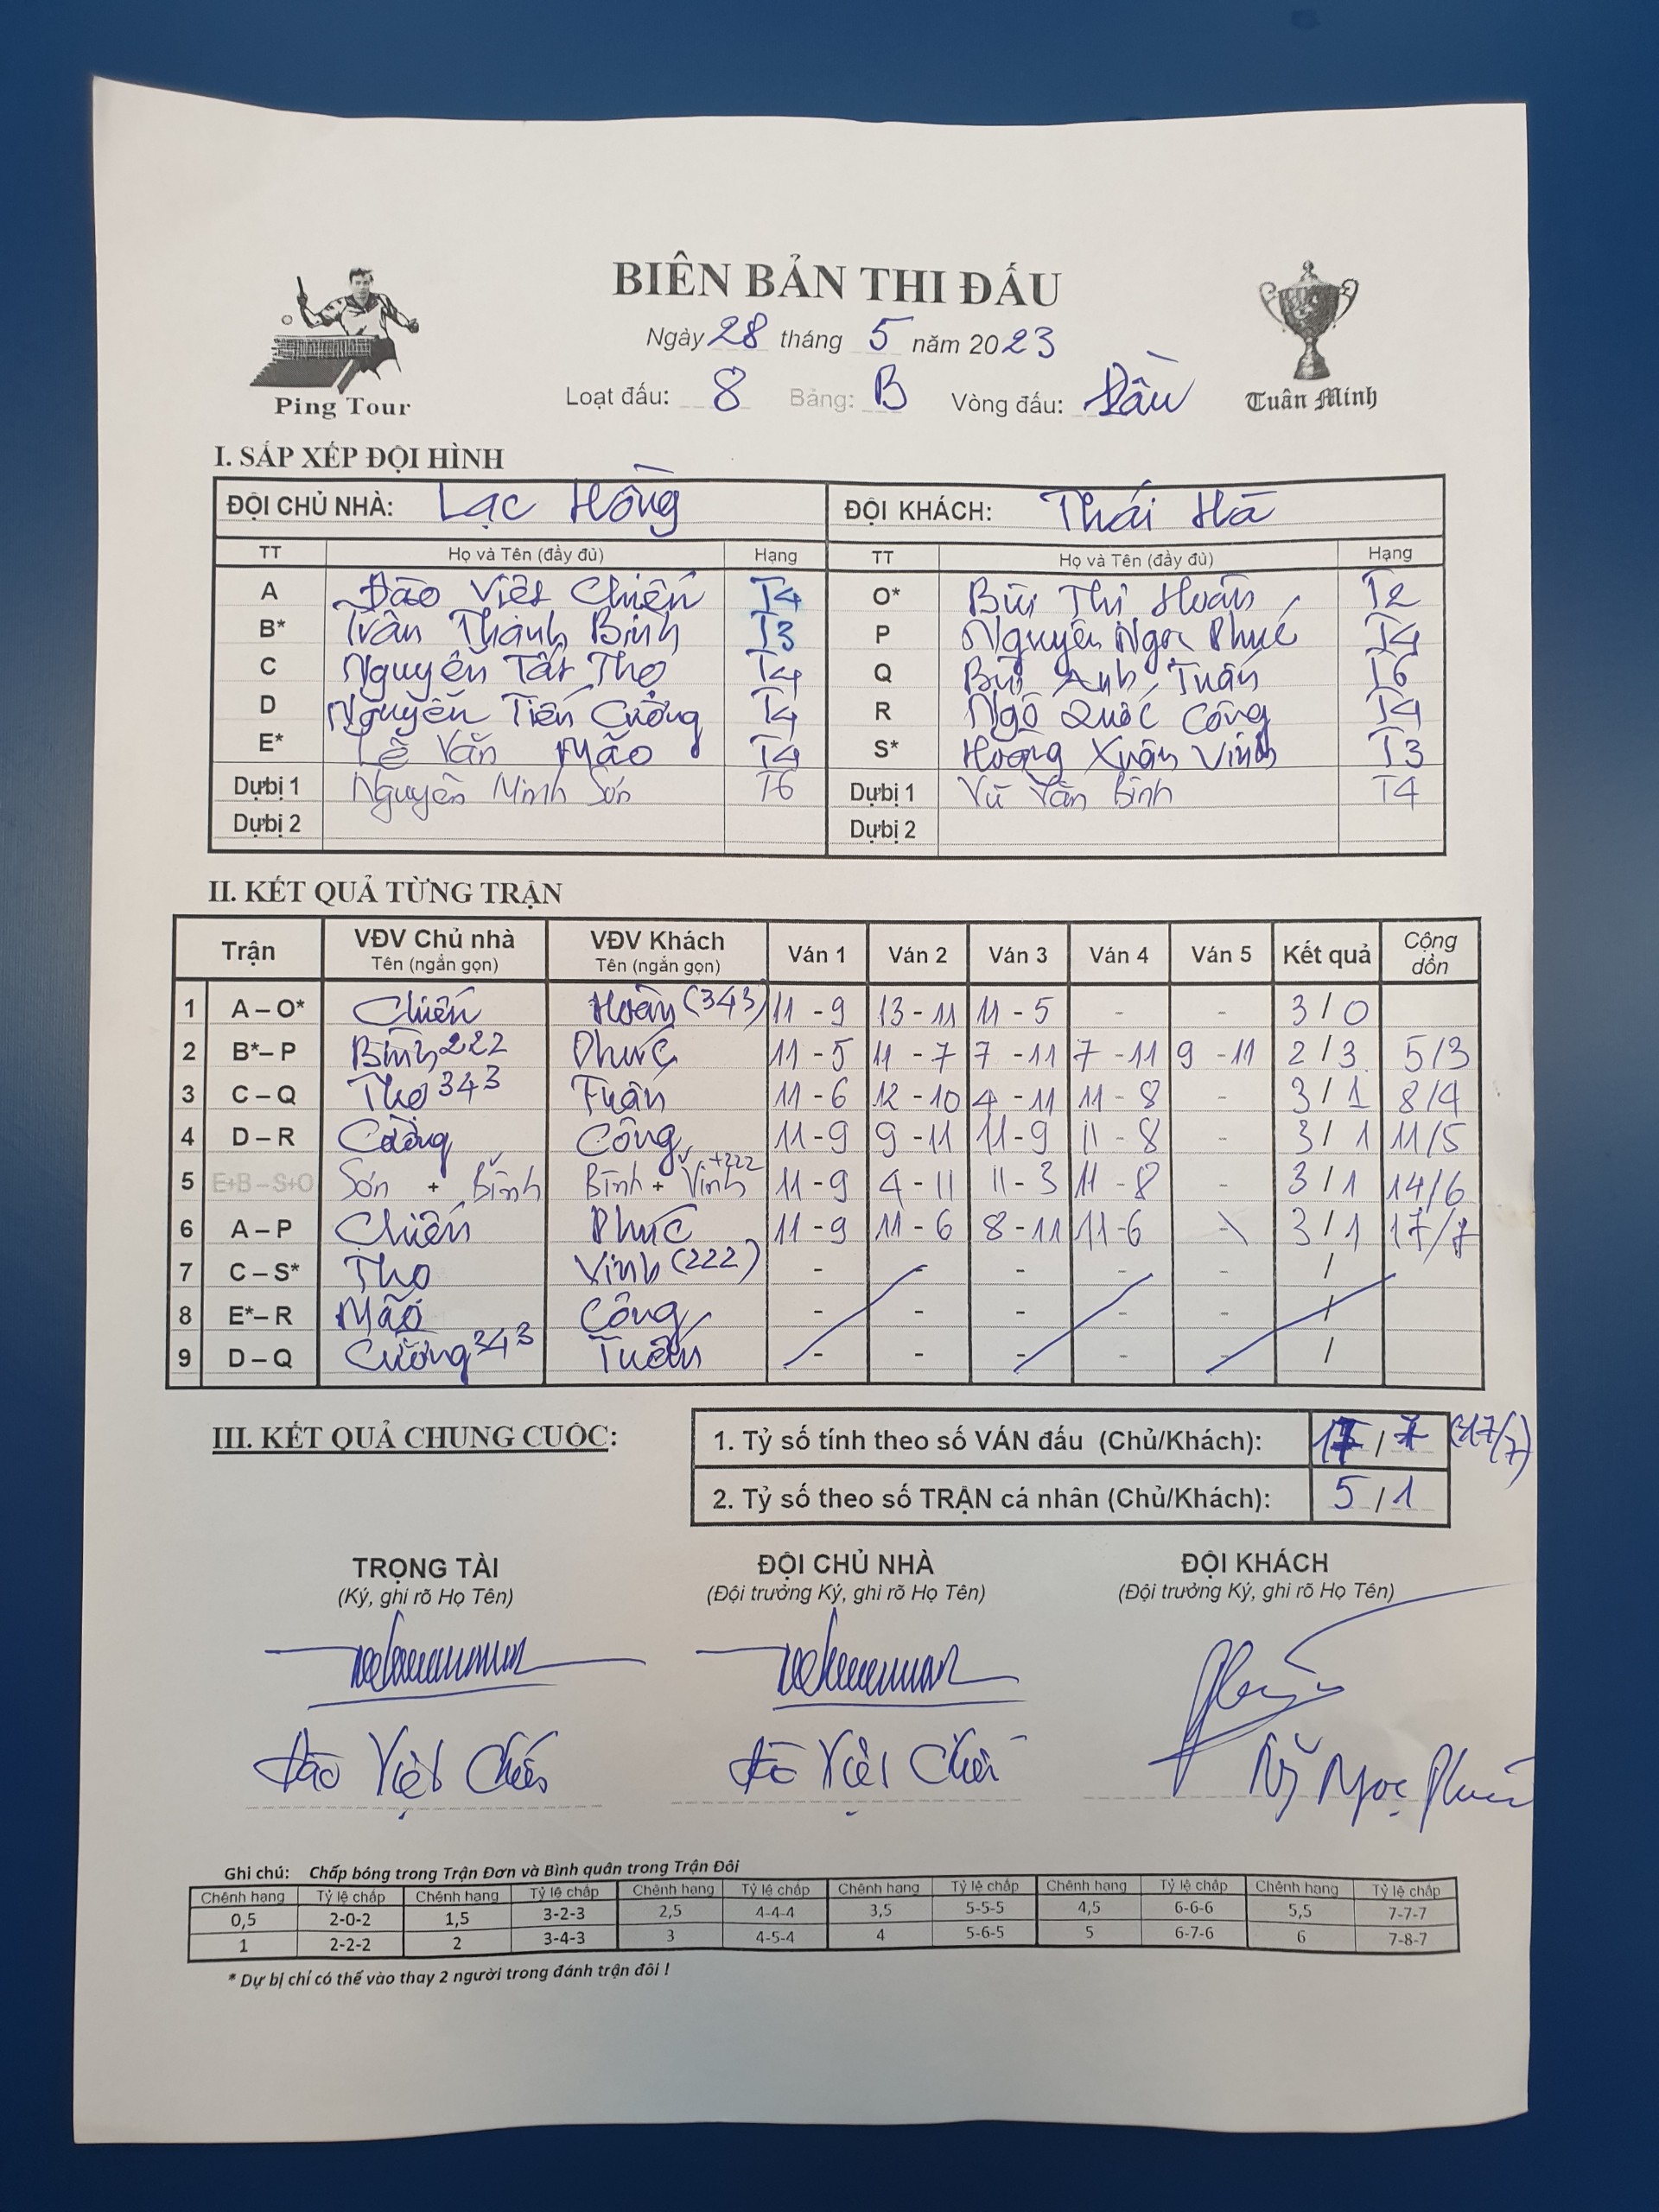 BIÊN BẢN THI ĐẤU
Ngày 28 tháng 5 năm 2023
Loạt đấu: 8 Bảng: B Vòng đấu: Đầu
Ping Tour
Tuấn Minh
I. SẮP XẾP ĐỘI HÌNH
ĐỘI CHỦ NHÀ: Lạc Hồng ĐỘI KHÁCH: Thái Hà
TT Họ và Tên (đầy đủ) Hạng TT Họ và Tên (đầy đủ) Hạng
A Đào Việt Chiến T4 O* Bùi Thị Hoàn T2
B* Trần Thanh Bình T3 P Nguyễn Ngọc Phúc T4
C Nguyễn Tất Thọ T4 Q Bùi Anh Tuấn T6
D Nguyễn Tiến Cường T4 R Ngô Quốc Công T4
E* Lê Văn Mão T4 S* Hoàng Xuân Vinh T3
Dự bị 1 Nguyễn Minh Sơn T6 Dự bị 1 Vũ Văn Bình T4
Dự bị 2 Dự bị 2
II. KẾT QUẢ TỪNG TRẬN
Trận VĐV Chủ nhà Tên (ngắn gọn) VĐV Khách Tên (ngắn gọn) Ván 1 Ván 2 Ván 3 Ván 4 Ván 5 Kết quả Cộng dồn
1 A – O* Chiến Hoàn (343) 11 - 9 13 - 11 11 - 5 - - 3 / 0
2 B* – P Bình 222 Phúc 11 - 5 11 - 7 7 - 11 7 - 11 9 - 11 2 / 3 5/3
3 C – Q Thọ 343 Tuấn 11 - 6 12 - 10 4 - 11 11 - 8 - 3 / 1 8/4
4 D – R Cường Công 11 - 9 9 - 11 11 - 9 11 - 8 - 3 / 1 11/5
5 E+B – S+O Sơn + Bình Bình + Vinh +222 11 - 9 4 - 11 11 - 3 11 - 8 - 3 / 1 14/6
6 A – P Chiến Phúc 11 - 9 11 - 6 8 - 11 11 - 6 - 3 / 1 17/7
7 C – S* Thọ Vinh (222) - - - - - /
8 E* – R Mão Công - - - - - /
9 D – Q Cường 343 Tuấn - - - - - /
III. KẾT QUẢ CHUNG CUỘC:
1. Tỷ số tính theo số VÁN đấu (Chủ/Khách): 17 / 7 (17/7)
2. Tỷ số theo số TRẬN cá nhân (Chủ/Khách): 5 / 1
TRỌNG TÀI ĐỘI CHỦ NHÀ ĐỘI KHÁCH
(Ký, ghi rõ Họ Tên) (Đội trưởng Ký, ghi rõ Họ Tên) (Đội trưởng Ký, ghi rõ Họ Tên)
Đào Việt Chiến Đào Việt Chiến Ng Ngọc Phúc
Ghi chú: Chấp bóng trong Trận Đơn và Bình quân trong Trận Đôi
Chênh hạng Tỷ lệ chấp Chênh hạng Tỷ lệ chấp Chênh hạng Tỷ lệ chấp Chênh hạng Tỷ lệ chấp Chênh hạng Tỷ lệ chấp Chênh hạng Tỷ lệ chấp
0,5 2-0-2 1,5 3-2-3 2,5 4-4-4 3,5 5-5-5 4,5 6-6-6 5,5 7-7-7
1 2-2-2 2 3-4-3 3 4-5-4 4 5-6-5 5 6-7-6 6 7-8-7
* Dự bị chỉ có thể vào thay 2 người trong đánh trận đôi !